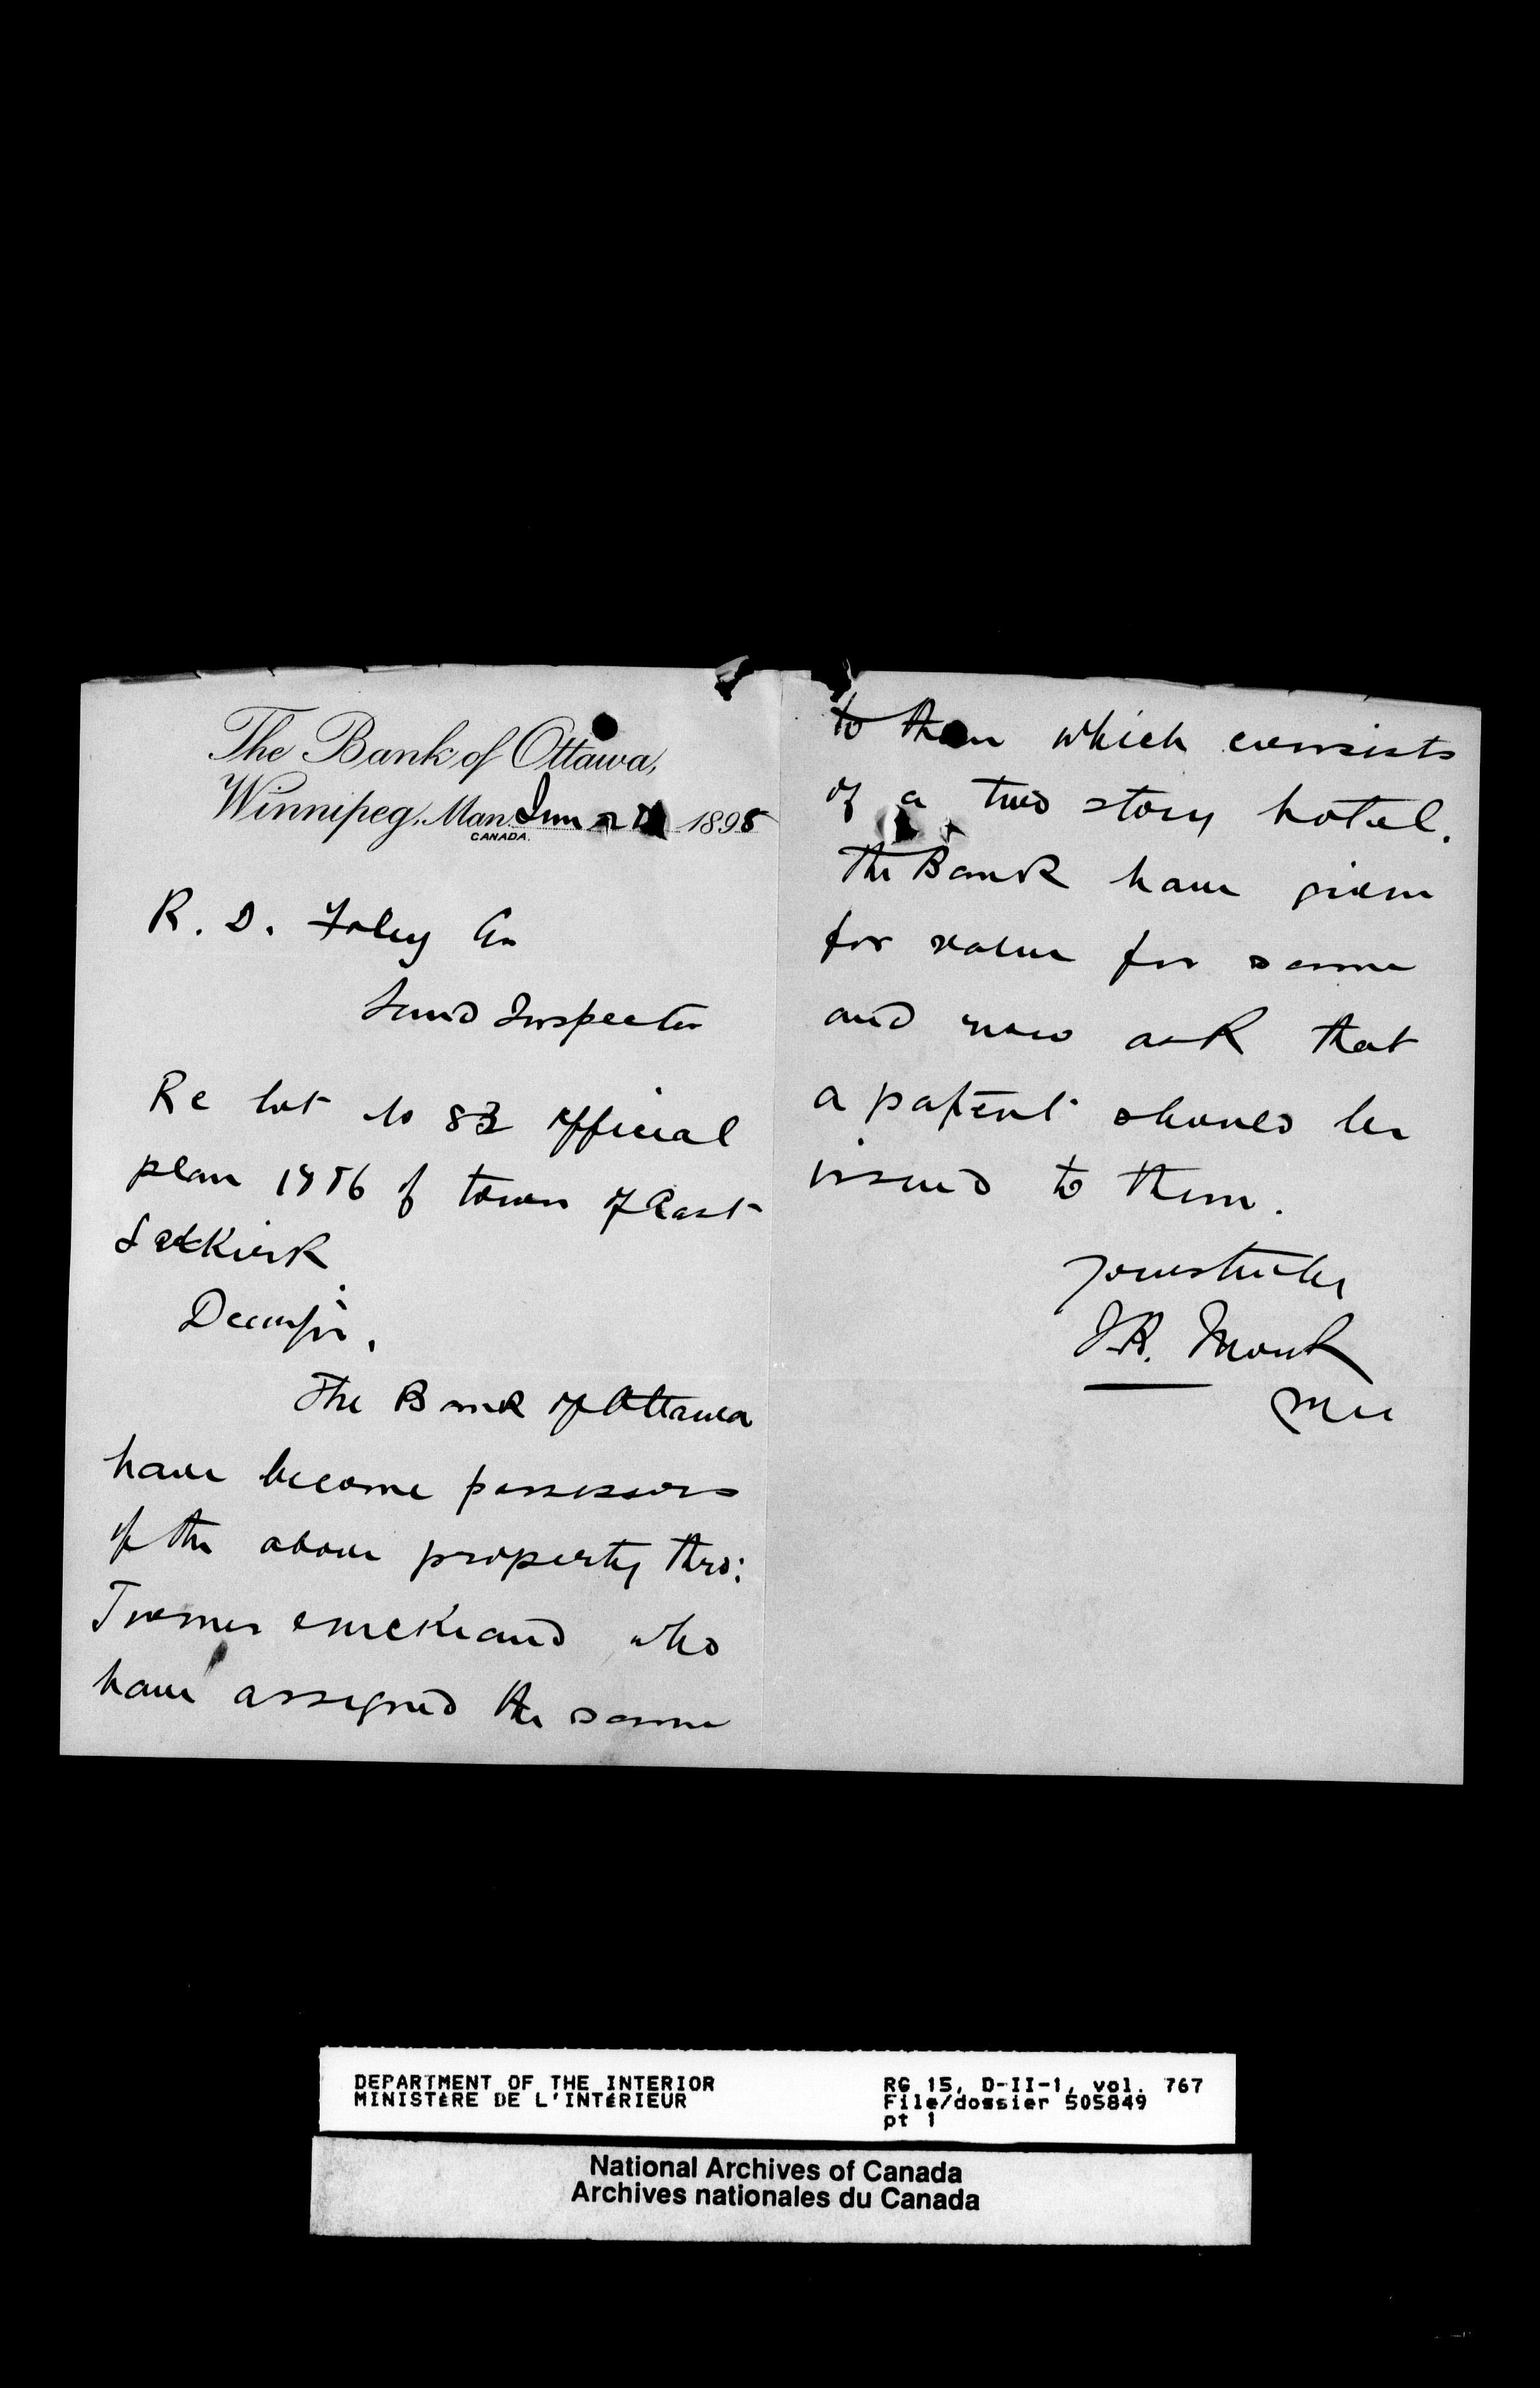 The Bank of Ottawa,
Winnipeg, Man. June 2 1898
CANADA.
R. D. Foley
Land Inspector
Re lot No 83 official
plan of town of East
Selkirk
Dear Sir,
The Bank of Ottawa
have become possessors
of the above property thro:
who
have assigned the same
to them which consists
of a two story hotel.
The Bank have given
for value for same
and now ask that
a patent should be
issued to them.
Yours truly
J.B. Monk
Mgr
DEPARTMENT OF THE INTERIOR
MINISTÈRE DE L'INTÉRIEUR
RG 15, D-II-1, vol. 767
File/dossier 505849
pt 1
National Archives of Canada
Archives nationales du Canada